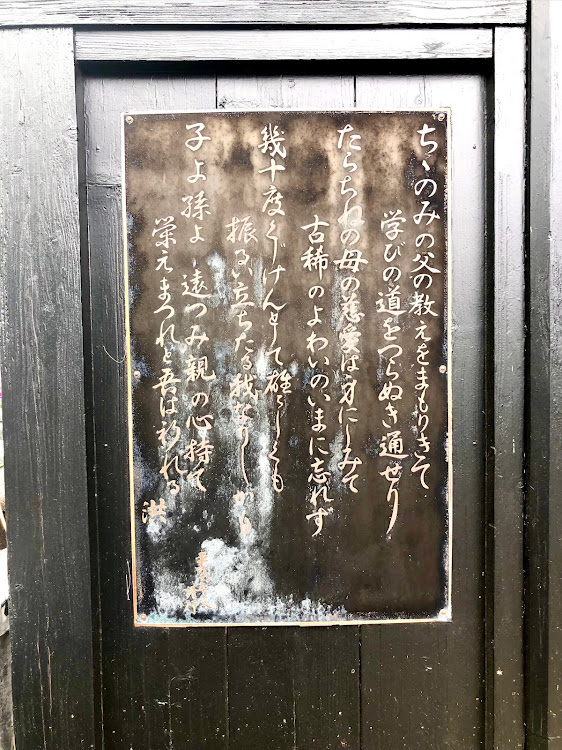 ちゝのみの父の教えをまもりきて
学びの道をつらぬき通せり
たらちねの母の慈愛は身にしみて
古稀のよわいのいまに忘れず
幾十度くじけんとして雄々しくも
振るい立ちたる我なりしかも
子よ孫よ遠つみ親の心持て
栄えまつれと吾は祈れる
洪